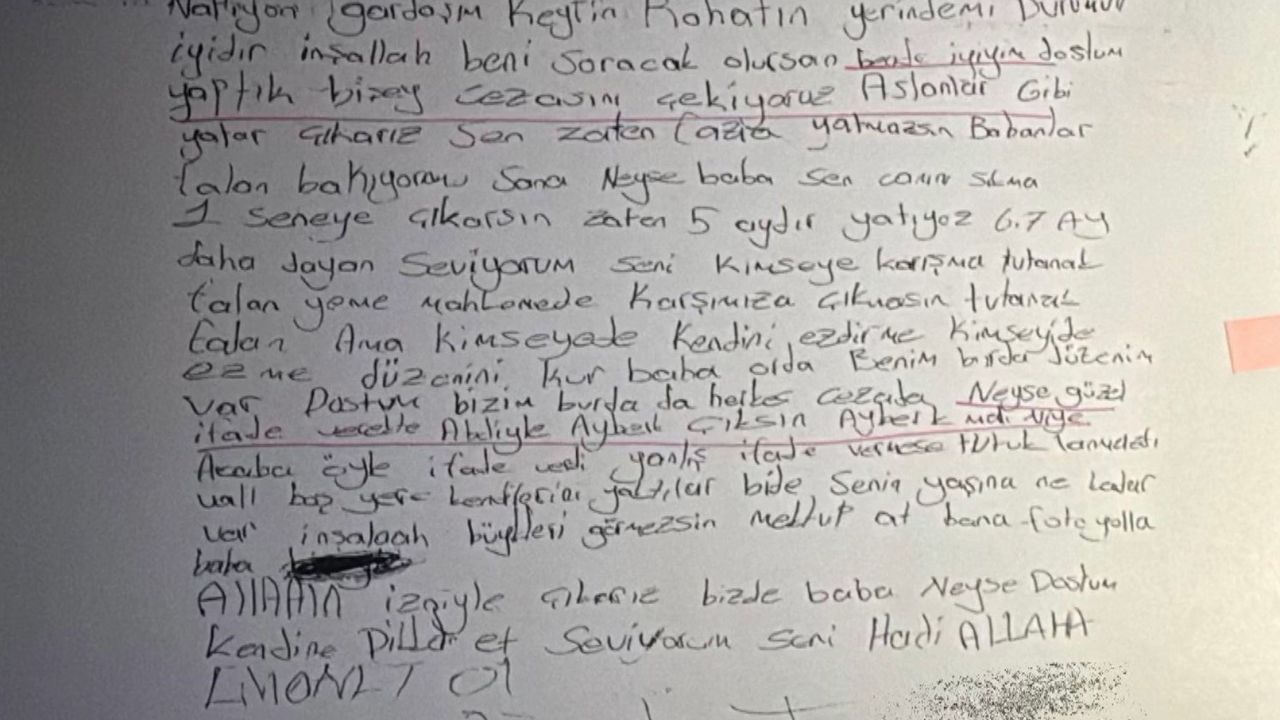 Napıyon gardaşım Keyfin Rohatın yerindemi Durumun
iyidir inşallah beni soracak olursan bende iyiyim dostum
yaptık bizey cezasını çekiyoruz Aslanlar Gibi
yatar çıkarız Sen zaten fazla yatmazsın Babanlar
falan bakıyoram Sana Neyse baba sen canın sıkma
1 Seneye çıkarsın zaten 5 aydır yatıyoz 6.7 AY
daha dayan Seviyorum seni Kimseye karışma tutanak
falan yeme mahkemede Karşımıza çıkmasın tutanak
falan Ama Kimseyede Kendini ezdirme Kimseyide
ezme düzenini Kur baba orda Benim burda düzenim
var Dostum bizim burda da herkes cezada Neyse güzel
ifade Abiliyle Ayberk Çıksın Ayberk niye
Acaba öyle ifade verdi yanlış ifade vermese tutuklanmazdı
vall boş yere yattılar bide Senin yaşına ne kadar
var inşalaah görmezsin mektup at bana foto yolla
baba
AllAHIN izniyle çıkarız bizde baba Neyse Dostum
Kendine Dikkat et Seviyorum seni Hadi ALLAHA
EMONET Ol